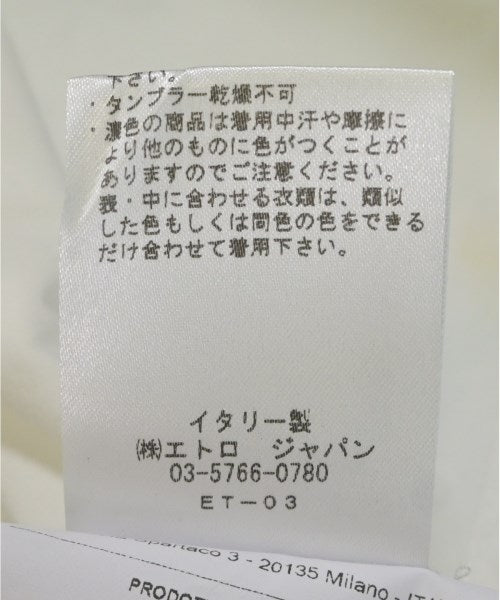 下さい。
・タンブラー乾燥不可
・濃色の商品は着用中汗や摩擦に
より他のものに色がつくことが
ありますのでご注意ください。
表・中に合わせる衣類は、類似
した色もしくは同色の色をできる
だけ合わせて着用下さい。
イタリー製
㈱エトロ ジャパン
03-5766-0780
ET-03
Spartaco 3 - 20135 Milano - ITA
PRODOT